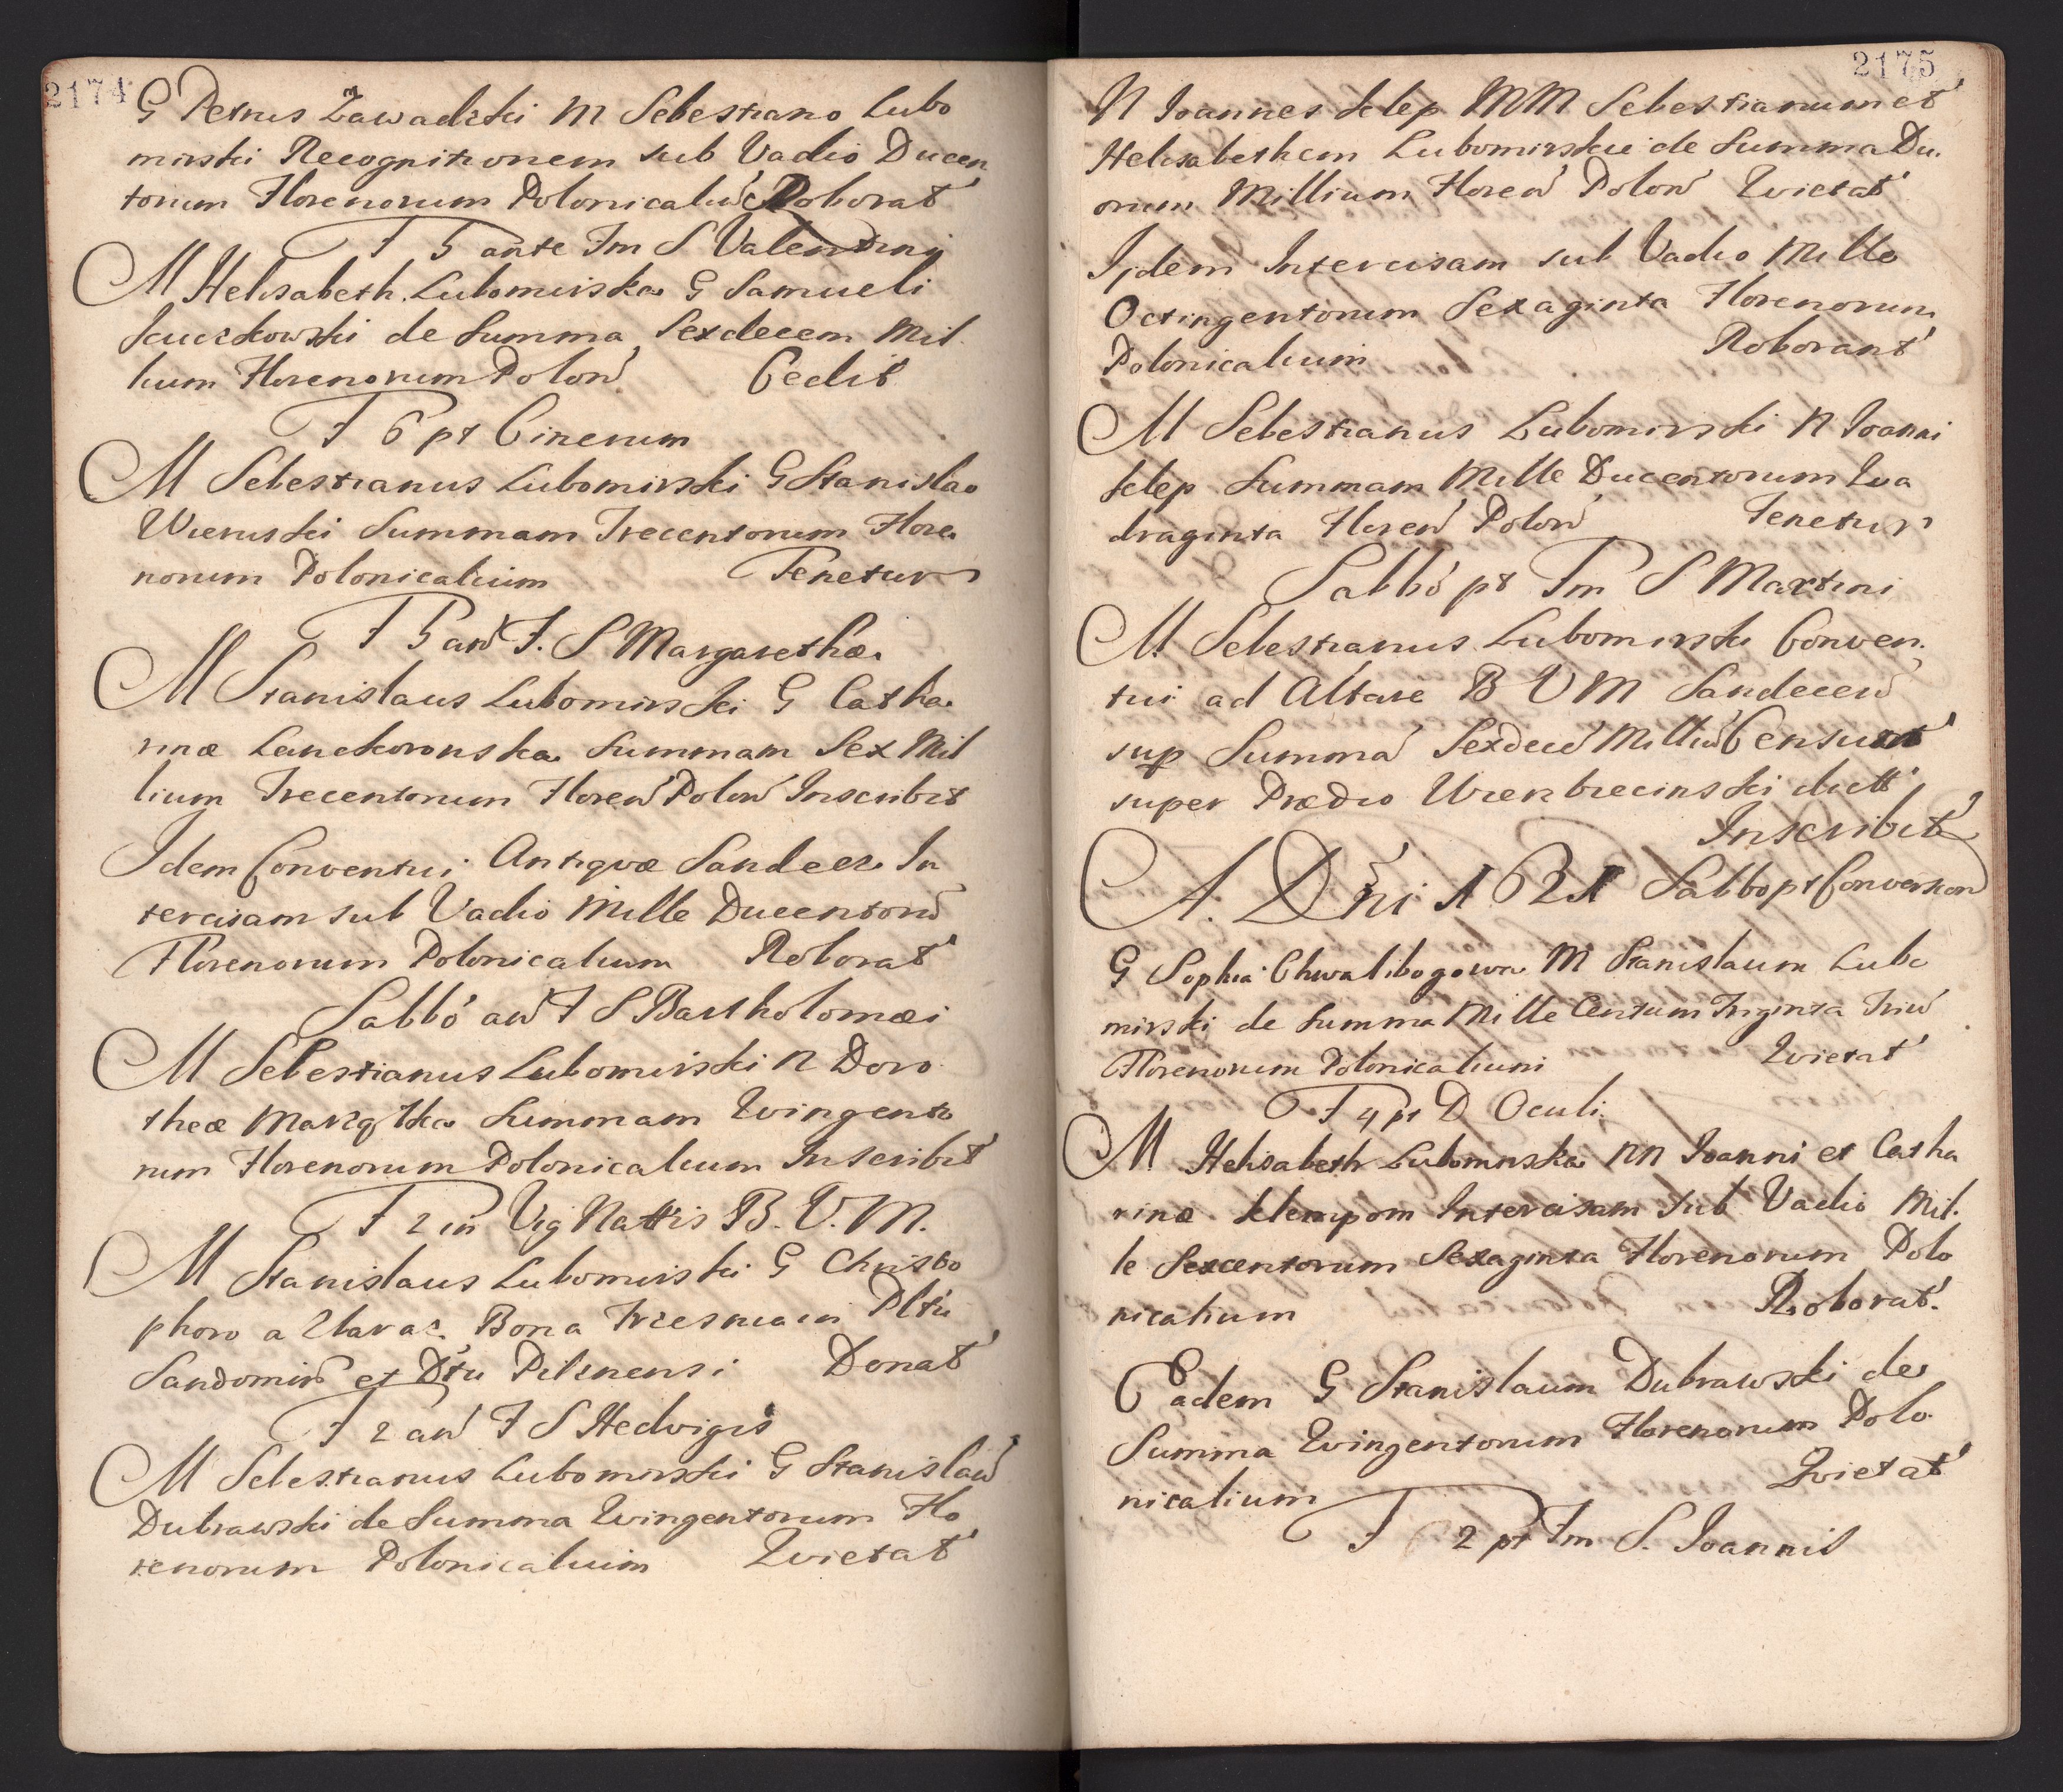 2174
G Petrus Zawadzki M Sebestiano Lubo
mirski Recognitionem sub Vadio Ducen
torum Florenorum Polonicaliu Roborat
F 5 ante Fm S Valentinij
M Helisabeth Lubomirska G Samueli
de Summa Sexdecem Mil
lium Florenorum Polon Cedit
F 6 pt Cinerum
M Sebestianus Lubomirski G Stanislao
Wieruski Summam Trecentorum Flore
norum Polonicalium Tenetur
F 5 an F. S Margarethæ
M Stanislaus Lubomirski G Catha
rinæ Lanckoronska Summam Sex Mil
lium Trecentorum Floren Polon Inscribit
Idem Conventui Antiquæ Sandecz In
tercisam sub Vadio Mille Ducentoru
Florenorum Polonicalium Roborat
Sabbo an F S Bartholomæi
M Sebestianus Lubomirski N Doro
theæ Summam Qvingento
rum Florenorum Polonicalium Inscribit
F 2 in Vig Nattis B. V. M.
M Stanislaus Lubomirski G Christo
phoro a Bona in Pltu
Sandomir et Dtu Pilznensi Donat
F 2 an F S Hedvigis
M Sebestianus Lubomirski G Stanislau
Dubrawski de Summa Qvingentorum Flo
renorum Polonicalium Qvietat
2175
N Joannes Selep MM Sebestianum et
Helisabethem Lubomirskie de Summa Du.
orum Millium Floren Polon Qvietat
Ijdem Intercisam sub Vadio Mille
Octingentorum Sexaginta Florenorum
Polonicalium Roborant
M Sebestianus Lubomirski N Joanni
Selep Summam Mille Ducentorum Qva
draginta Floren Polon Tenetur
Sabbo pt Fm S Martini
M Sebestianus Lubomirski Conven
tui ad Altare B V M Sandecen
sup Summa Sexdece Milliu
super Prædio dict
Inscribit
A. Dni 1621 Sabbo pt Conversion
G Sophia Chwalibogowa M Stanislaum Lubo
mirski de Summa Mille Centum Triginta Triu
Florenorum Polonicalium Qvietat
F 4 pt D Oculi
M Helisabeth Lubomirska NN Joanni et Catha
rinæ Selempom Intercisam sub Vadio Mil
le Sexcentorum Sexaginta Florenorum Polo
nicalium Roborat.
Eadem G Stanislaum Dubrawski de
Summa Qvingentorum Florenorum Polo
nicalium Qvietat
F 2 pt Fm S. Joannis